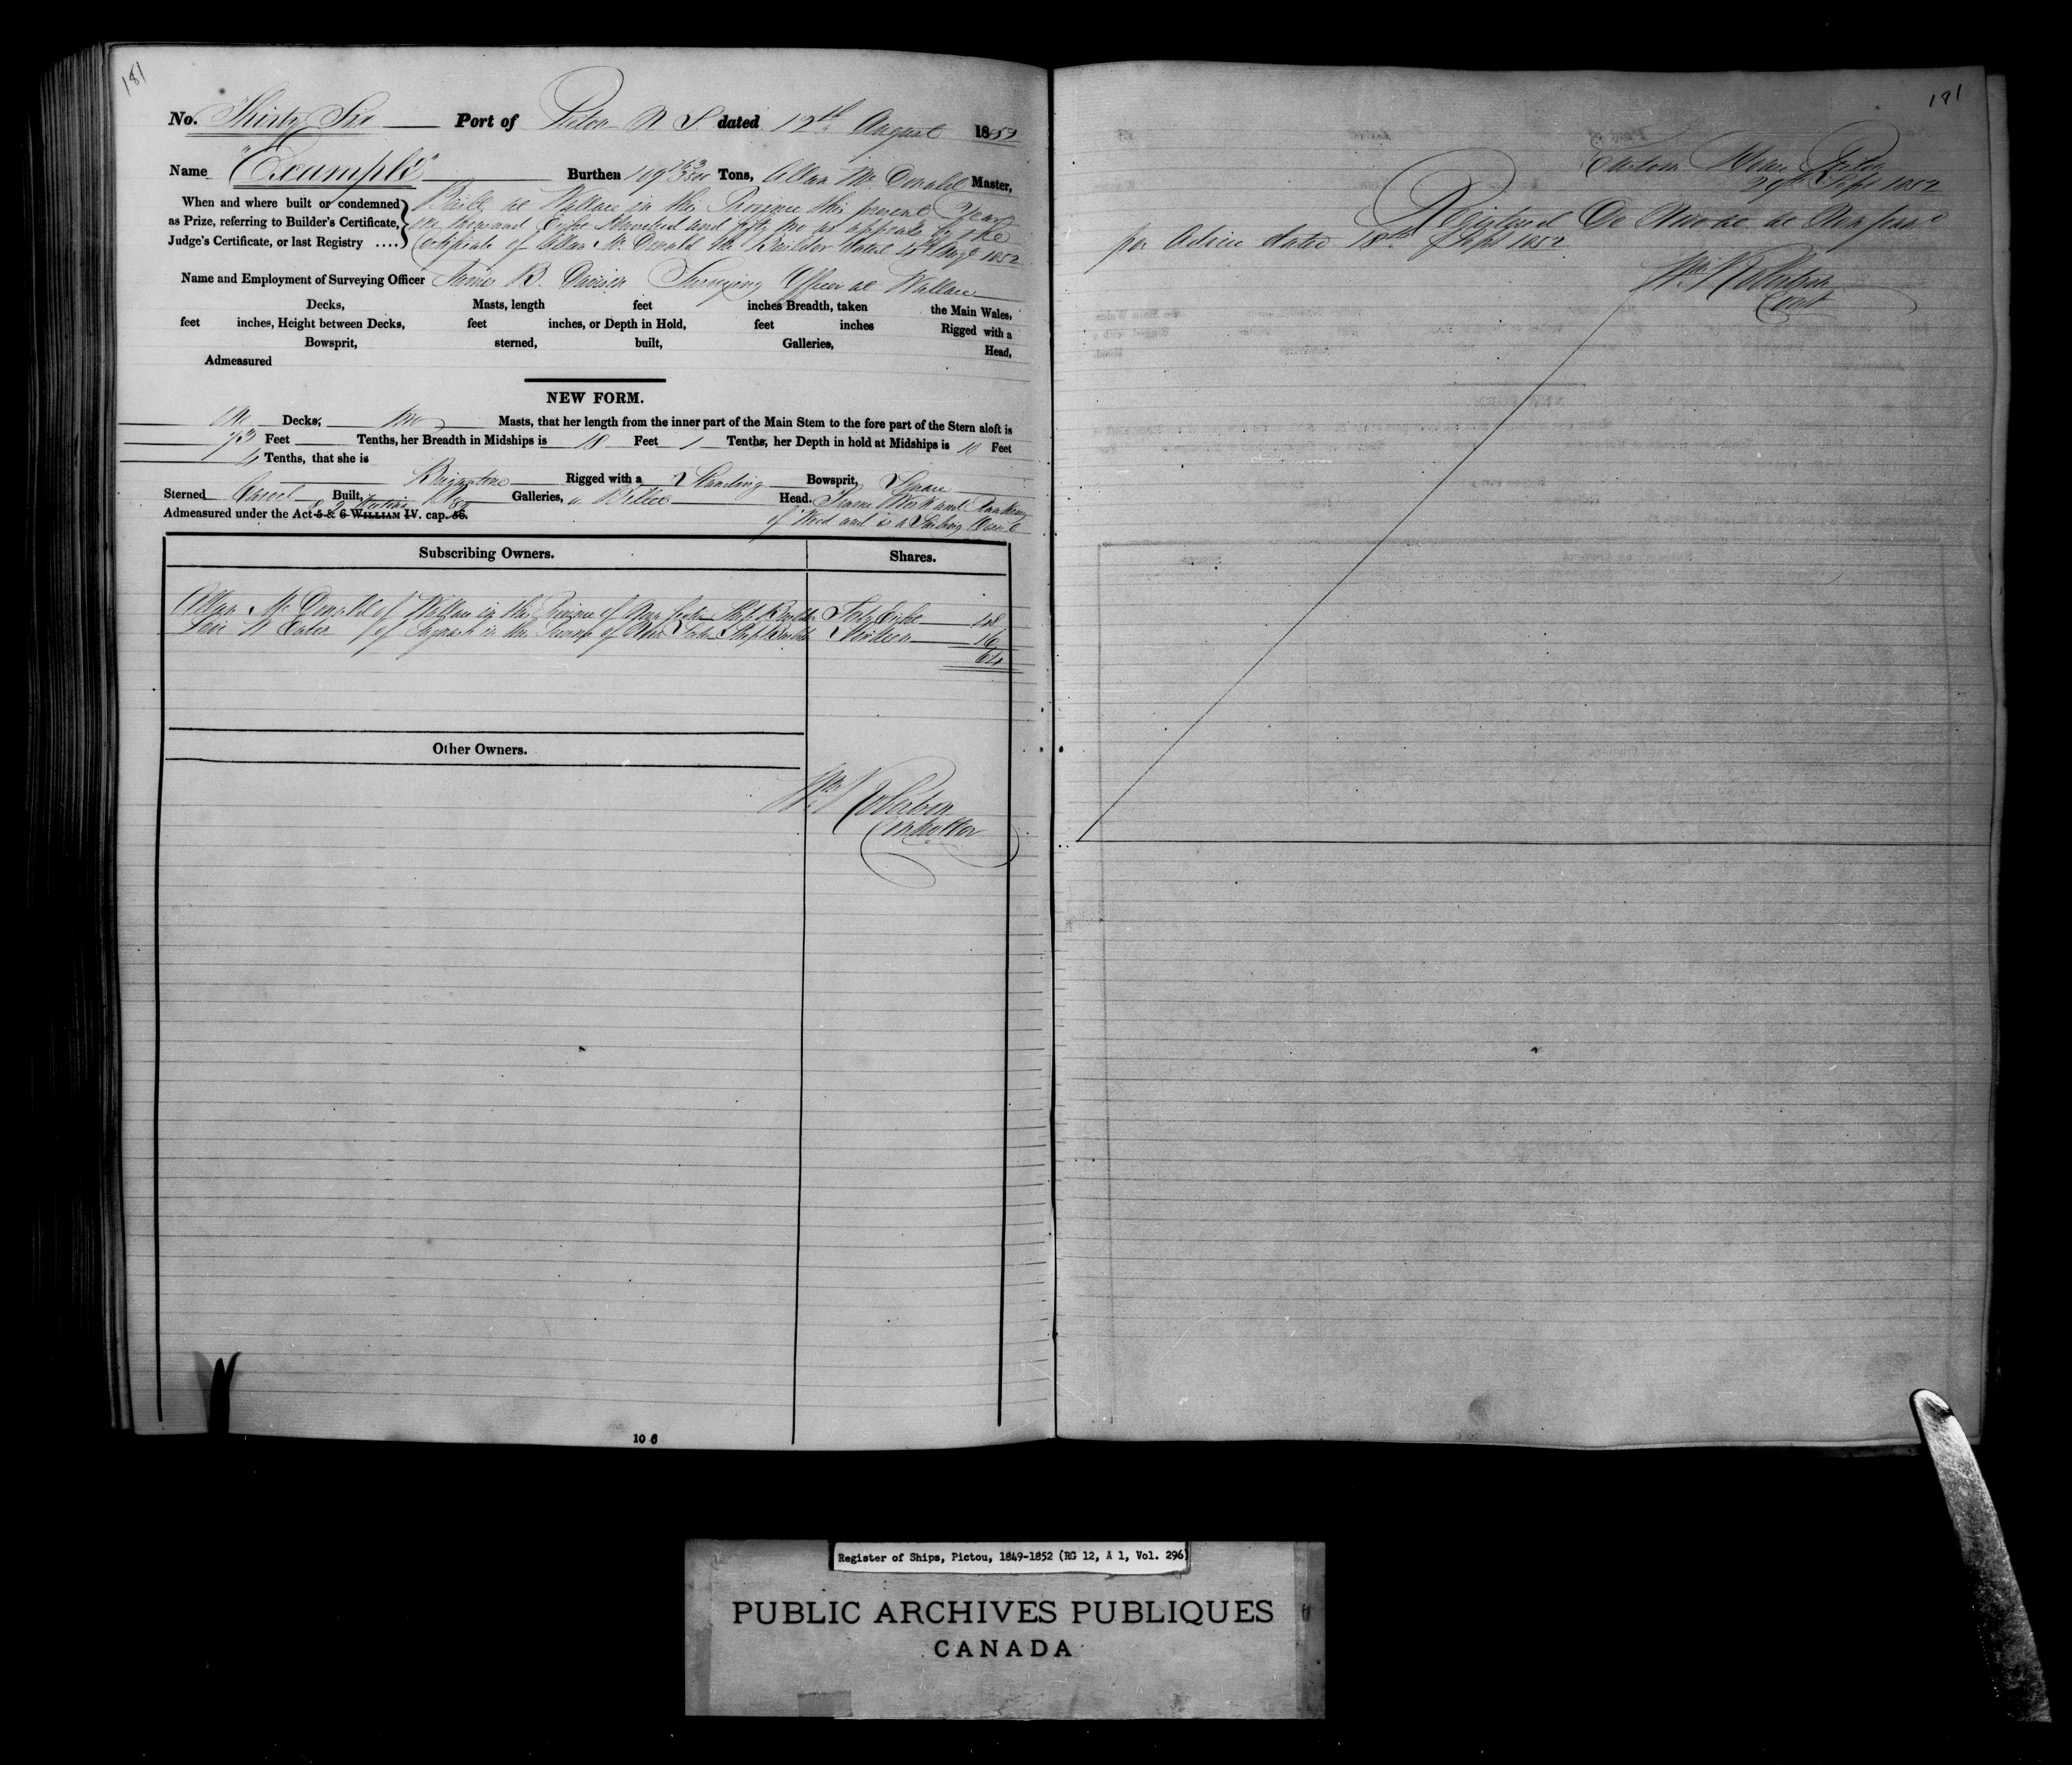 181
No. Thirty Six Port of Pictou N S dated 12th August 1852
Name "Example" Burthen 109 763/3500 Tons, Allan McDonald Master,
When and where built or condemned
as Prize, referring to Builder's Certificate,
Judge's Certificate, or last Registry ....
Built at Wallace in this Province this present Year
one thousand Eight Hundred and fifty two as appears by the
Certificate of Allan McDonald the Builder dated 4th Augt 1852
Name and Employment of Surveying Officer James B. Davison Surveying Officer at Wallace
Decks, Masts, length feet inches Breadth, taken the Main Wales,
feet inches, Height between Decks, feet inches, or Depth in Hold, feet inches Rigged with a
Bowsprit, sterned, built, Galleries, Head,
Admeasured
NEW FORM.
One Decks, two Masts, that her length from the inner part of the Main Stem to the fore part of the Stern aloft is
73 Feet Tenths, her Breadth in Midships is 18 Feet 1 Tenths, her Depth in hold at Midships is 10 Feet
4 Tenths, that she is
Brigantine Rigged with a Standing Bowsprit, Square
Sterned Carvel Built, Galleries, a Billet Head. Frame Work and Planking
Admeasured under the Act 5 & 6 WILLIAM IV. cap. 56. 8 & 9 Victoria 89
of Wood and is a Sailing Vessel
Subscribing Owners. Shares.
Allan McDonald of Wallace in the Province of Nova Scotia Ship Builder Forty Eight 48
Levi W Eaton of Pugwash in the Province of Nova Scotia Ship Builder Sixteen 16
64
Other Owners.
Wm Robertson
Controller
10 6
181
Custom House Pictou
29th Sept 1852
Registered De Novo at
per Advice dated 18th Sept 1852
Wm Robertson
Cont
Register of Ships, Pictou, 1849-1852 (RG 12, A 1, Vol. 296)
PUBLIC ARCHIVES PUBLIQUES
CANADA